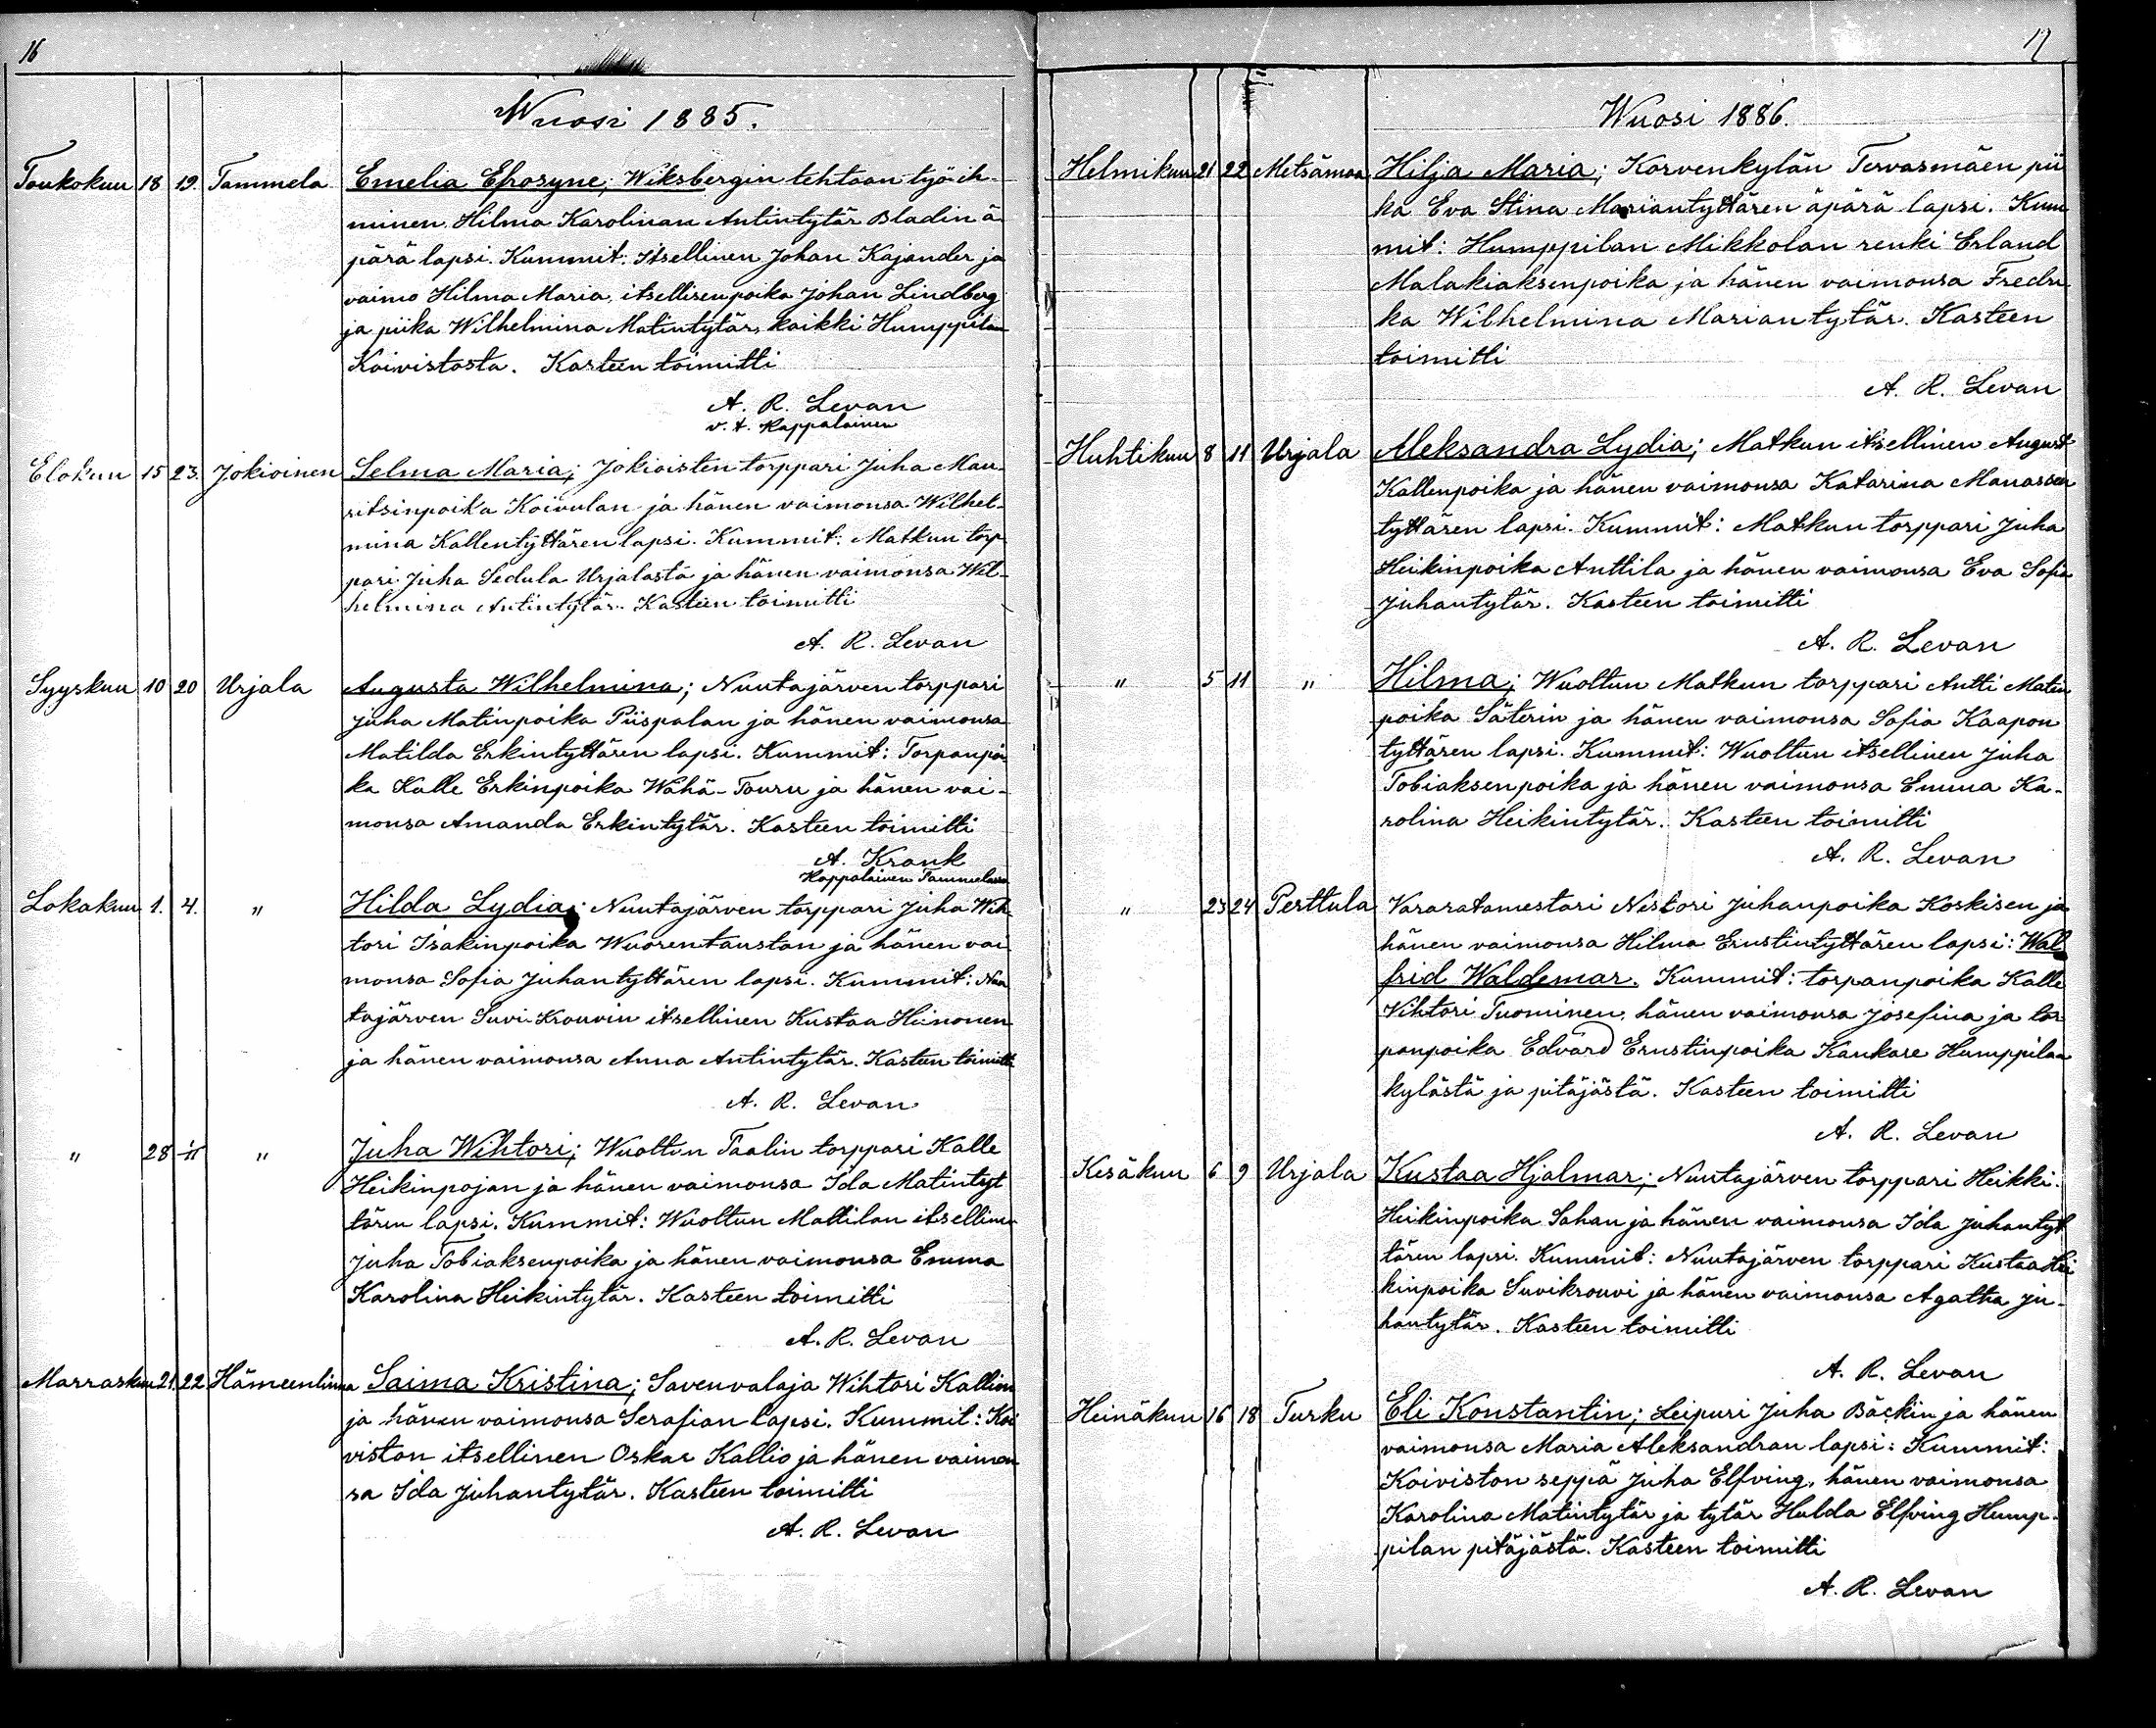 16
Wuosi 1885.
Toukokuu 18 19. Tammela Emelia Efrosyne; Wiksbergin tehtaan työ ih-
minen Hilma Karolinan Antintytär Bladin ä
pärä lapsi. Kummit: Itsellinen Johan Kajander ja
vaimo Hilma Maria, itsellisenpoika Johan Lindberg
ja piika Wilhelmina Matintytär, kaikki Humppilan
Koivistosta. Kasteen toimitti
A. R. Levan
v. t. Kappalainen
Elokuu 15 23. Jokioinen Selma Maria; Jokioisten torppari Juha Mau-
ritsinpoika Koivulan ja hänen vaimonsa Wilhel-
mina Kallentyttären lapsi. Kummit: Matkun torp
pari Juha Sedula Urjalasta ja hänen vaimonsa Wil-
helmina Antintytär. Kasteen toimitti
A. R. Levan
Syyskuu 10 20 Urjala Augusta Wilhelmina; Nuutajärven torppari
Juha Matinpoika Piispalan ja hänen vaimonsa
Matilda Erkintyttären lapsi. Kummit: Torpanpoi
ka Kalle Erkinpoika Wähä-Touru ja hänen vai-
monsa Amanda Erkintytär. Kasteen toimitti
A. Krank
Kappalainen Tammelassa
Lokakuu 1. 4. " Hilda Lydia; Nuutajärven torppari Juha Wih
tori Isakinpoika Wuorentaustan ja hänen vai
monsa Sofia Juhantyttären lapsi. Kummit: Nuu
tajärven Suvi-Krouvin itsellinen Kustaa Heinonen
ja hänen vaimonsa Anna Antintytär. Kasteen toimitti
A. R. Levan
" 28 " Juha Wihtori; Wuoltun Taalin torppari Kalle
Heikinpojan ja hänen vaimonsa Ida Matintyt
tären lapsi. Kummit: Wuoltun Mattilan itsellinen
Juha Tobiaksenpoika ja hänen vaimonsa Emma
Karolina Heikintytär. Kasteen toimitti
A. R. Levan
Marraskuu 21. 22 Hämeenlinna Saima Kristina; Savenvalaja Wihtori Kallion
ja hänen vaimonsa Serafian lapsi. Kummit: Koi
viston itsellinen Oskar Kallio ja hänen vaimon
sa Ida Juhantytär. Kasteen toimitti
A. R. Levan
17
Wuosi 1886.
Helmikuu 21 22 Metsämaa Hilja Maria; Korvenkylän Tervasmäen pii
ka Eva Stina Mariantyttären äpärä lapsi. Kum
mit: Humppilan Mikkolan renki Erland
Malakiaksenpoika ja hänen vaimonsa Fredri
ka Wilhelmina Mariantytär. Kasteen
toimitti
A. R. Levan
Huhtikuu 8 11 Urjala Aleksandra Lydia; Matkun itsellinen August
Kallenpoika ja hänen vaimonsa Katarina Manassen
tyttären lapsi. Kummit: Matkun torppari Juha
Heikinpoika Anttila ja hänen vaimonsa Eva Sofia
Juhantytär. Kasteen toimitti
A. R. Levan
" 5 11 " Hilma; Wuoltun Matkun torppari Antti Matin
poika Säterin ja hänen vaimonsa Sofia Kaapon
tyttären lapsi. Kummit: Wuoltun itsellinen Juha
Tobiaksenpoika ja hänen vaimonsa Emma Ka-
rolina Heikintytär. Kasteen toimitti
A. R. Levan
" 23 24 Perttula Vararatamestari Nestori Juhanpoika Koskisen ja
hänen vaimonsa Hilma Ernstintyttären lapsi: Wal
frid Waldemar. Kummit: torpanpoika Kalle
Vihtori Tuominen, hänen vaimonsa Josefina ja tor
panpoika Edvard Ernstinpoika Kankare Humppilan
kylästä ja pitäjästä. Kasteen toimitti
A. R. Levan
Kesäkuu 6 9 Urjala Kustaa Hjalmar; Nuutajärven torppari Heikki
Heikinpoika Sahan ja hänen vaimonsa Ida Juhantyt
tären lapsi. Kummit: Nuutajärven torppari Kustaa Hei
kinpoika Suvikrouvi ja hänen vaimonsa Agatha Ju-
hantytär. Kasteen toimitti
A. R. Levan
Heinäkuu 16 18 Turku Eli Konstantin; Leipuri Juha Bäckin ja hänen
vaimonsa Maria Aleksandran lapsi: Kummit:
Koiviston seppä Juha Elfving, hänen vaimonsa
Karolina Matintytär ja tytär Hulda Elfving Hump-
pilan pitäjästä. Kasteen toimitti
A. R. Levan